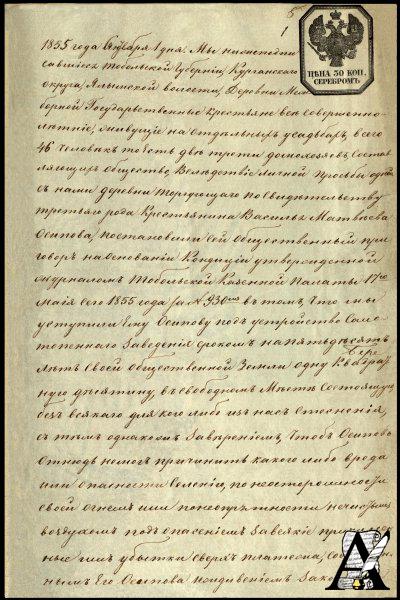 5
1
ЦѢНА 30 КОП.
СЕРЕБРОМЪ.
1855 года Октября 1 дня. Мы нижеподпи
савшіеся Тобольской Губерніи, Курганскаго
округа, Ялынской волости, Деревни
борной Государственные крестьяне всѣ совершенно-
лѣтніе, живущіе на отдѣльныхъ усадьбахъ, всего
46 человѣкъ то есть двѣ трети домохозяевъ, Состав
ляющихъ общество Вслѣдствіе личной просьбы одной
съ нами деревни торгующаго по свидѣтельству
третьяго рода Крестьянина Василья Матвѣева
Осипова, постановили сей общественный при
говоръ на основаніи Кондицій утвержденной
журналомъ Тобольской Казенной Палаты 17го
маія сего 1855 года за № 930мъ въ томъ, что мы
уступили Ему Осипову подъ устройство Сало
топеннаго Заведенія срокомъ на пятьдѣсятъ
лѣтъ своей общественной Земли одну Квадрат
ную дѣсятину, въ свободномъ мѣстѣ Состоящую
безъ всякаго для кого либо изъ насъ стѣсненія,
съ тѣмъ однакожъ Завѣреніемъ, чтобъ Осиповъ
отнюдь немогъ причинить какого либо вреда
или опасности селенію, по неосторожности
своей огнемъ или по неопрятности нечистымъ
воздухомъ подъ опасеніемъ Завсякіе
ныя имъ убытки сверхъ платежа,
нымъ Его Осипова
А